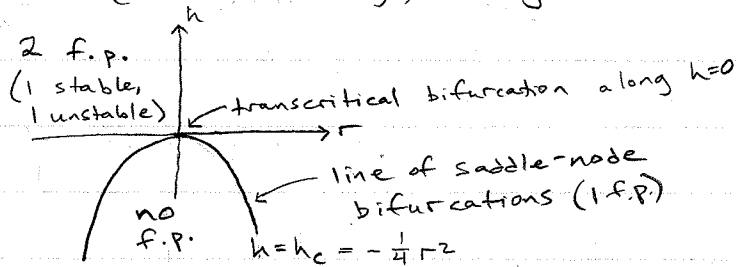 h
2 f.p.
(1 stable,
1 unstable)
transcritical bifurcation along h=0
r
line of saddle-node
bifurcations (1 f.p.)
no
f.p.
h = h_c = -1/4 r²